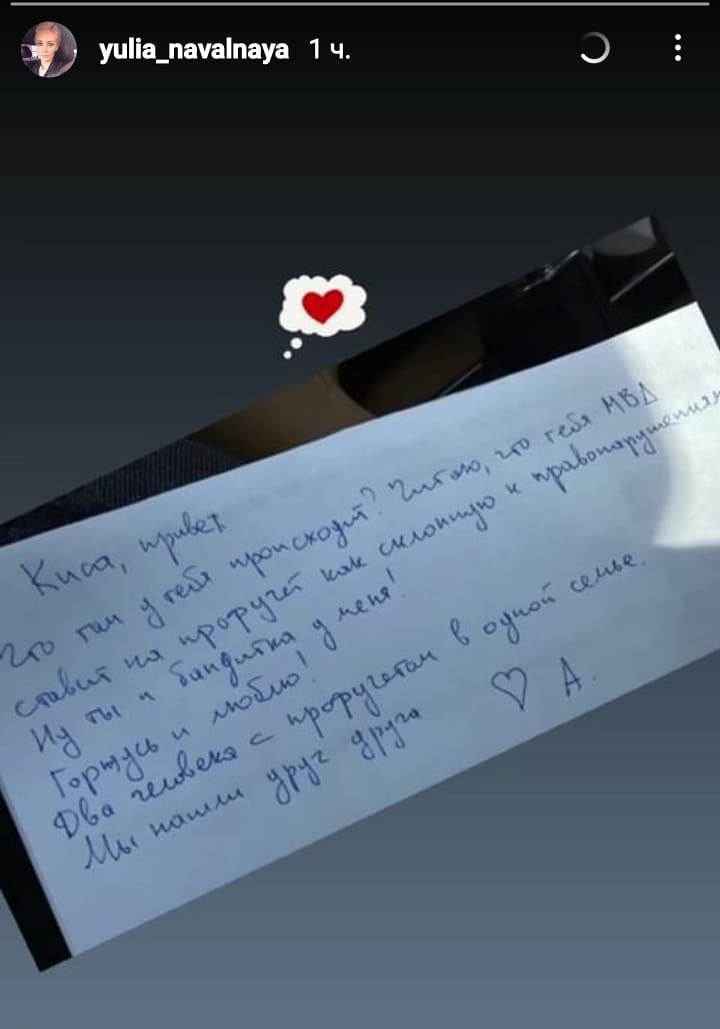 yulia_navalnaya 1 ч.
Киса, привет
Что там у тебя происходит? Читаю, что тебя МВД
ставит на профучёт как склонную к правонарушениям
Ну ты и бандитка у меня!
Горжусь и люблю!
Два человека с профучетом в одной семье.
Мы нашли друг друга ♡ А.